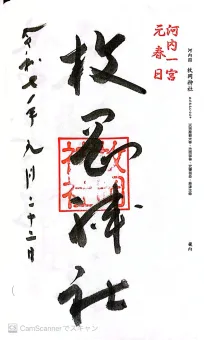 河内国 枚岡神社
河内一宮
元春日
枚岡神社
枚岡神社
令和七年九月二十二日
CamScannerでスキャン